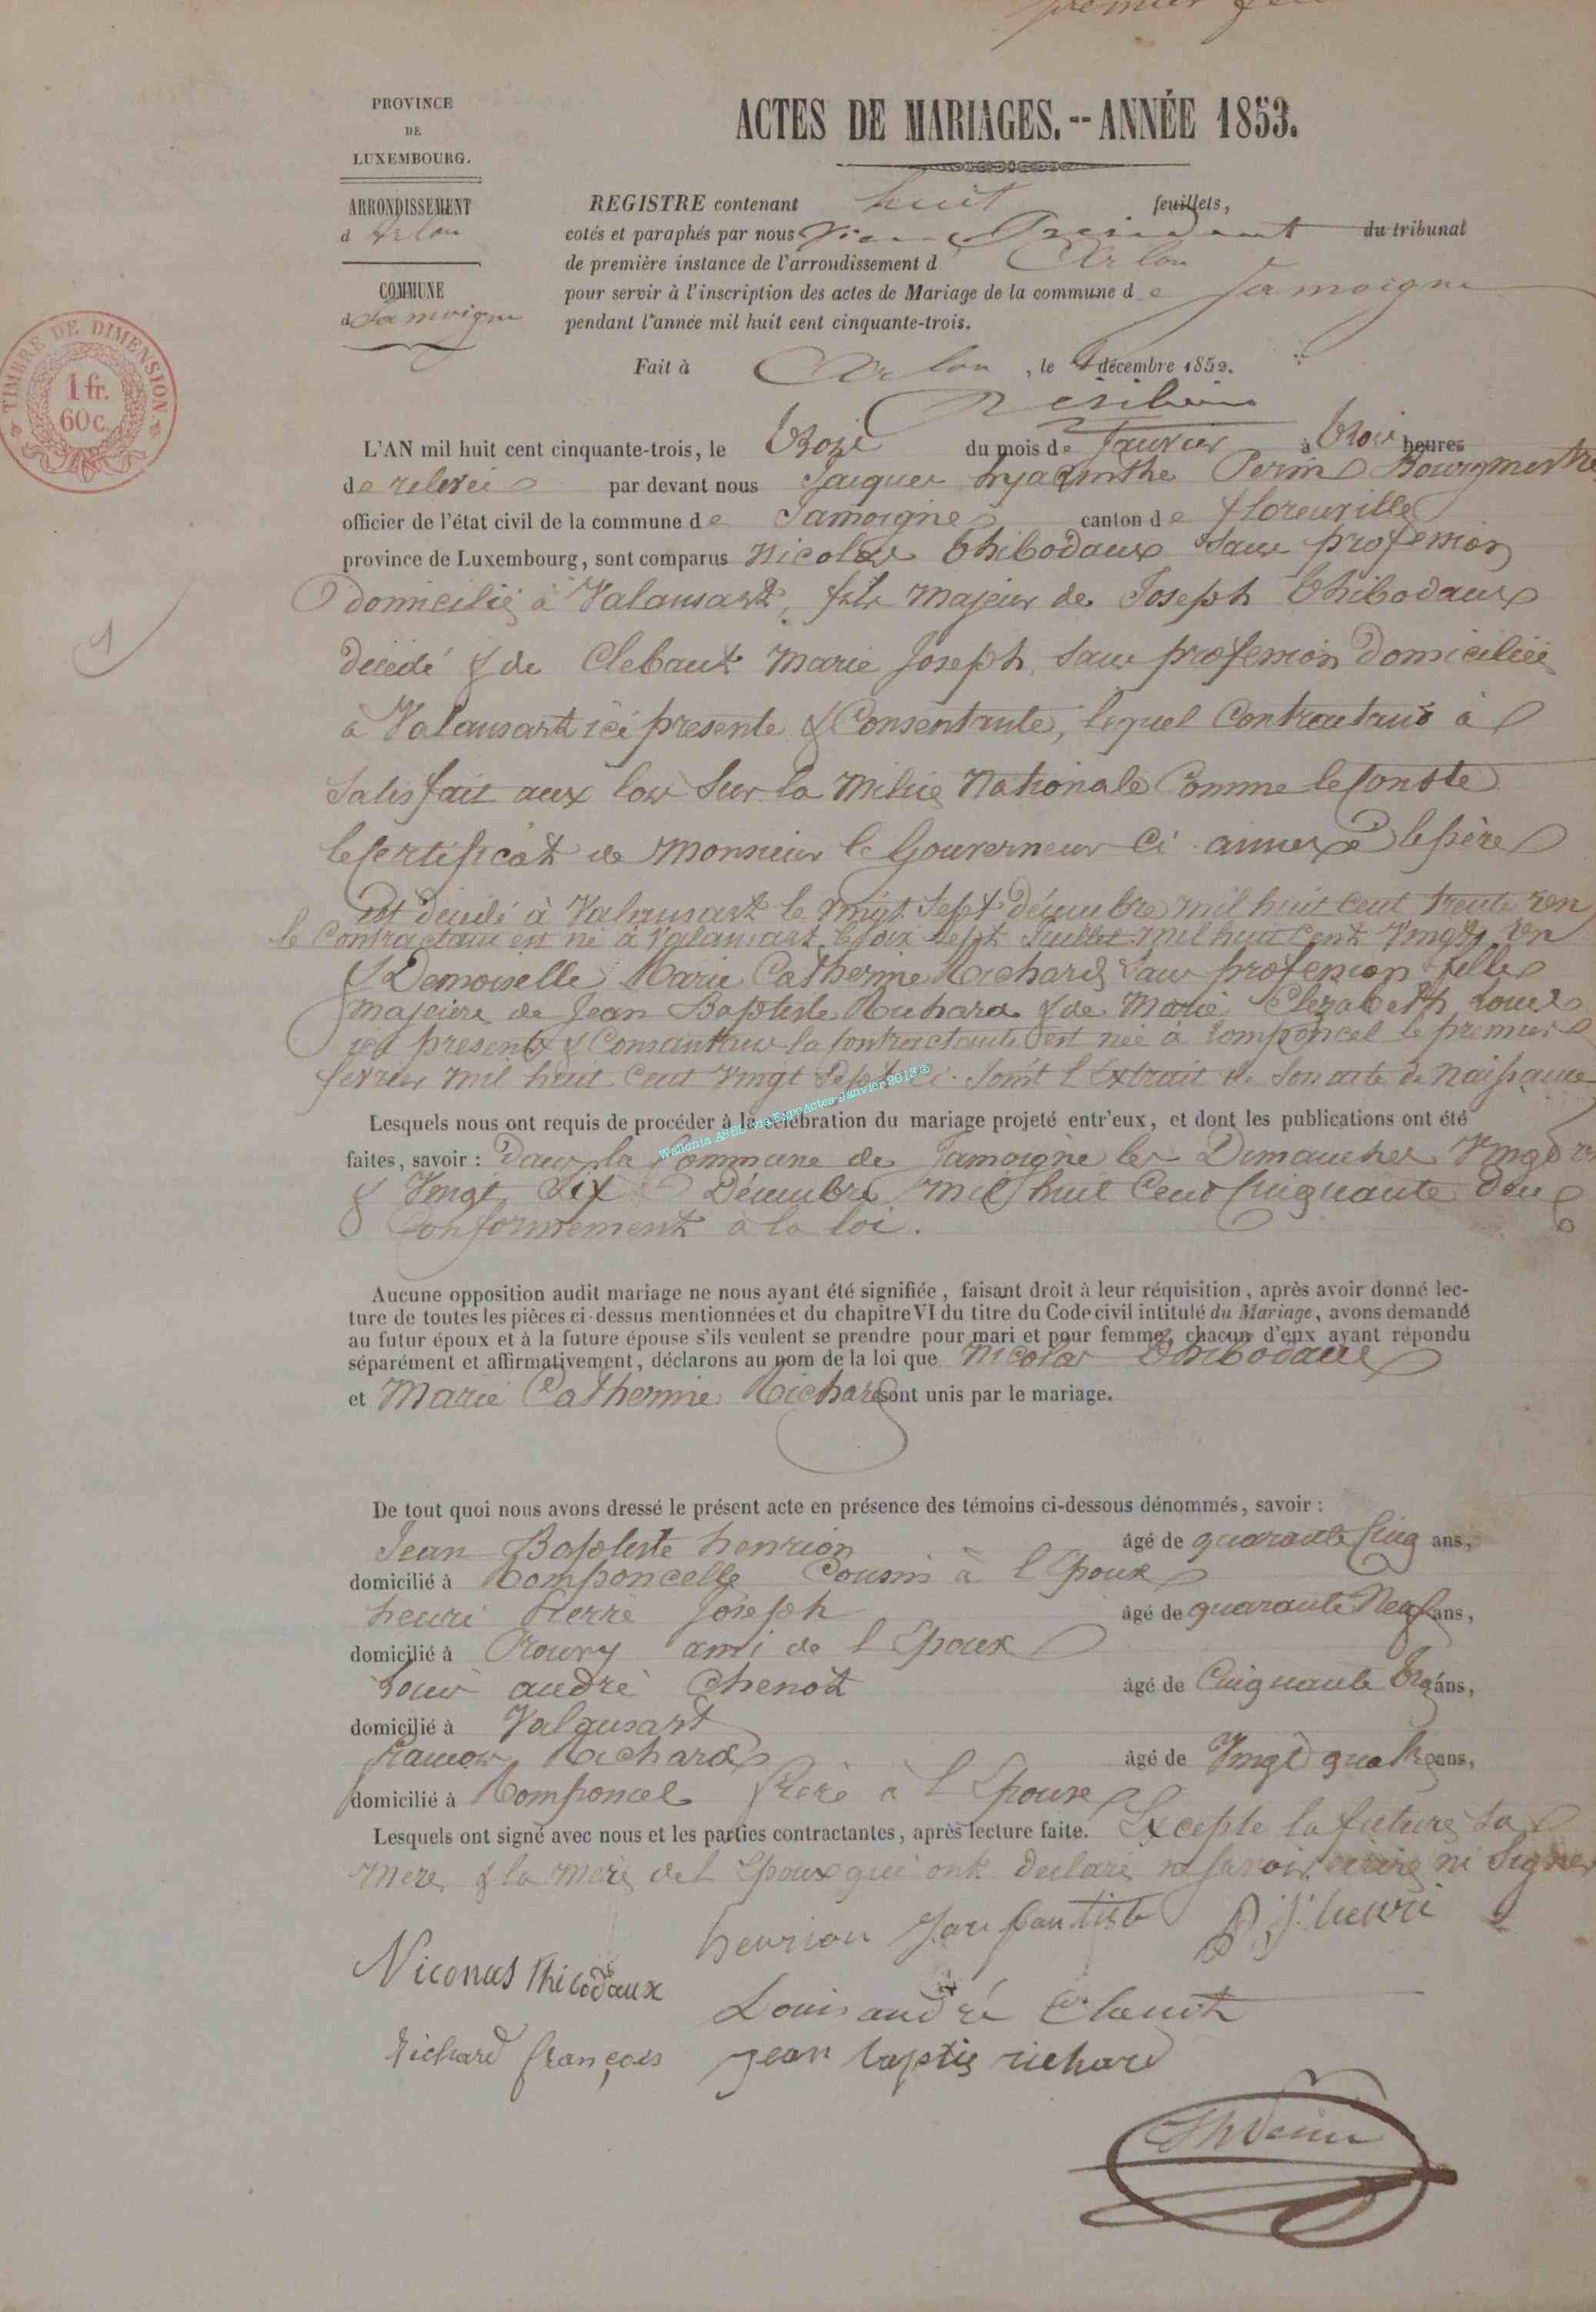 premier feu
PROVINCE
DE
LUXEMBOURG.
ARRONDISSEMENT
d Arlon
COMMUNE
de Jamoigne
TIMBRE DE DIMENSION
1 fr.
60 c.
1
ACTES DE MARIAGES.--ANNÉE 1853.
REGISTRE contenant huit feuillets,
cotés et paraphés par nous Président du tribunal
de première instance de l'arrondissement d Arlon
pour servir à l'inscription des actes de Mariage de la commune de Jamoigne
pendant l'année mil huit cent cinquante-trois.
Fait à Arlon, le décembre 1852.
L'AN mil huit cent cinquante-trois, le du mois de Janvier à trois heures
de relevée par devant nous Jacques hyacinthe Perin Bourgmestre
officier de l'état civil de la commune de Jamoigne canton de florenville
province de Luxembourg, sont comparus Nicolas Thibodaux sans profession
domicilié à Valansart, fils majeur de Joseph Thibodaux
décédé & de Clebaut Marie Joseph sans profession domiciliée
à Valansart ici presente & Consentante, lequel Contractant à
Satisfait aux lois Sur la Milice Nationale Comme le Conste
le Certificat de Monsieur le Gouverneur Ci annexé le père
est décédé à Valansart le vingt Sept décembre mil huit cent trente un
le Contractant est né à Valansart le dix sept Juillet mil huit Cent Vingt un
& Demoiselle Marie Catherine Richard Sans profession fille
majeure de Jean Baptiste Richard & de Marie Elezabeth Louis
ici presents & Consantans la Contractante est née à Romponcel le premier
fevrier mil huit Cent Vingt Sept Ci Joint l'Extrait de Son acte de Naissance
Wallonia ASBL via ExpoActes-Janvier 2013®
Lesquels nous ont requis de procéder à la célébration du mariage projeté entr'eux, et dont les publications ont été
faites, savoir : dans la Commune de Jamoigne les Dimanches Vingt
& Vingt Six Décembre mil huit Cent Cinquante deux
Conformement à la loi.
Aucune opposition audit mariage ne nous ayant été signifiée, faisant droit à leur réquisition, après avoir donné lec-
ture de toutes les pièces ci-dessus mentionnées et du chapitre VI du titre du Code civil intitulé du Mariage, avons demandé
au futur époux et à la future épouse s'ils veulent se prendre pour mari et pour femme, chacun d'eux ayant répondu
séparément et affirmativement, déclarons au nom de la loi que Nicolas Thibodaux
et Marie Catherine Richard sont unis par le mariage.
De tout quoi nous avons dressé le présent acte en présence des témoins ci-dessous dénommés, savoir :
Jean Baptiste henrion âgé de quarante Cinq ans,
domicilié à Romponcelle Cousin à l'Epoux
henri Pierre Joseph âgé de quarante Neuf ans,
domicilié à Prouvy ami de l'Epoux
Louis andré Chenot âgé de Cinquante ans,
domicilié à Valansart
francois Richard âgé de Vingt quatre ans,
domicilié à Romponcel frère à l'Epouse
Lesquels ont signé avec nous et les parties contractantes, après lecture faite. Excepté la future Sa
Mere & la Mere de l'Epoux qui ont declaré ne Savoir écrire ni Signer
henrion Jan bautiste P J henri
Niconas Thibodaux
Louis andré
Richard françois jean baptis richard